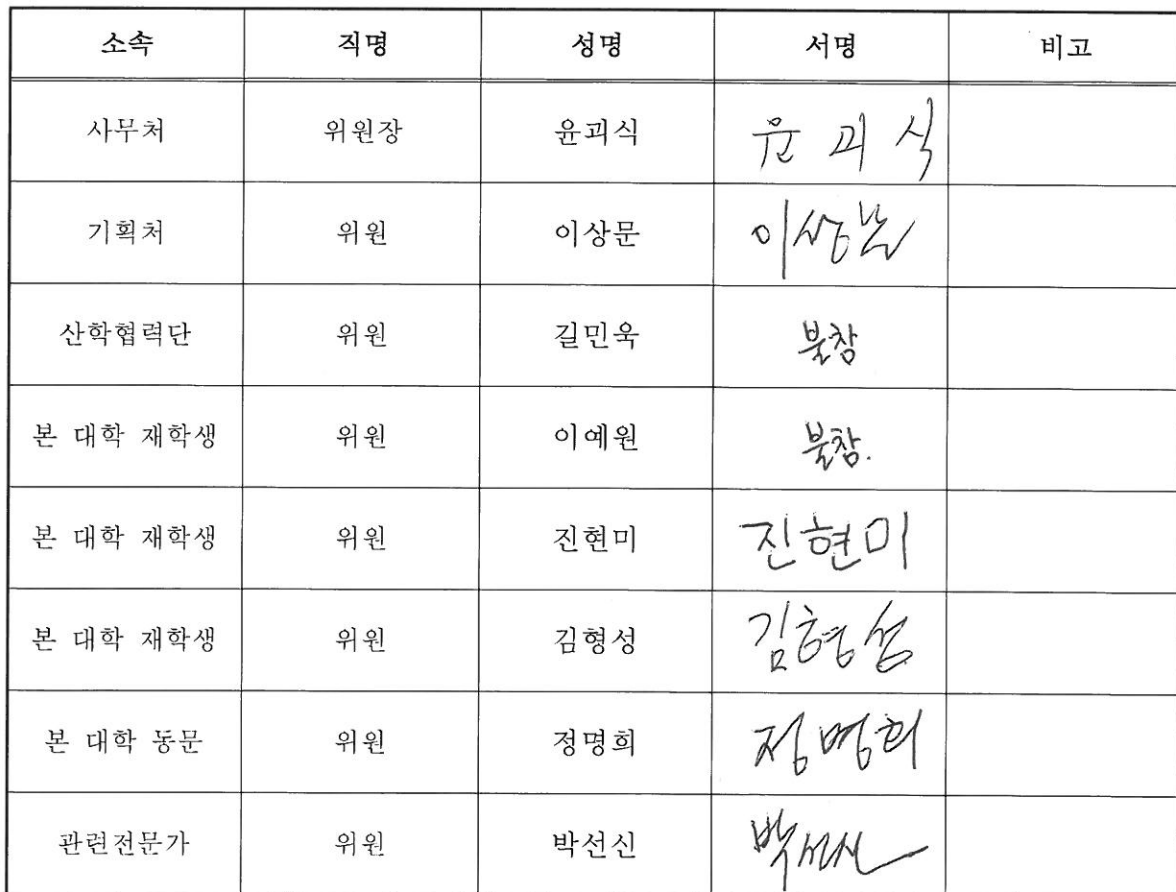 소속 직명 성명 서명 비고
사무처 위원장 윤괴식 윤괴식
기획처 위원 이상문 이상문
산학협력단 위원 길민욱 불참
본 대학 재학생 위원 이예원 불참.
본 대학 재학생 위원 진현미 진현미
본 대학 재학생 위원 김형성 김형성
본 대학 동문 위원 정명희 정명희
관련전문가 위원 박선신 박선신